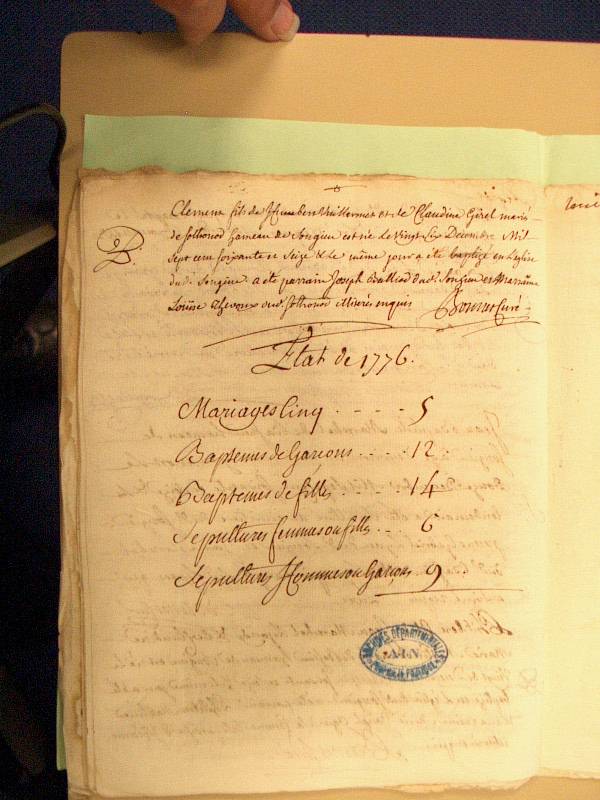 Clement fils de Humbert Vuillermet et de Claudine Girel mariés
de Jolhonod hameau de Songieu est né le vingt six Decembre Mil
Sept cent soixante et Seize & le même jour a eté baptizé en l'eglise
dud. Songieu a eté parrain Joseph dud. Songieu et Marraine
Louise dud. Jolhonod illiterés enquis Bonnet Curé
B.
Etat de 1776.
Mariages Cinq - - - - 5
Baptemes de Garçons - - - - 12
Baptemes de filles - - - - 14
Sepultures femmes ou filles - - - 6
Sepultures Hommes ou Garçons 9
ARCHIVES DÉPARTEMENTALES
AIN